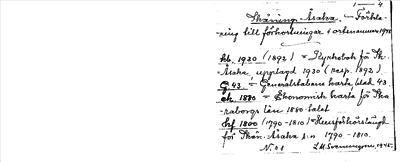 1 — 4
Skånings-Åsaka. — Förkla-
ring till förkortningar i ortnamnen 1945
kb. 1930 (1892) = Kyrkobok för Sk.
Åsaka, upplagd 1930 (resp. 1892).
G 43. = Generalstabens karta, blad 43.
ek. 1880 = Ekonomisk karta för Ska-
raborgs län 1880-talet
hfl 1800 (1790-1810) = Husförhörslängd
för Skån. Åsaka s:n 1790-1810.
N:o 1 L.M. Svenungsson, 1945.